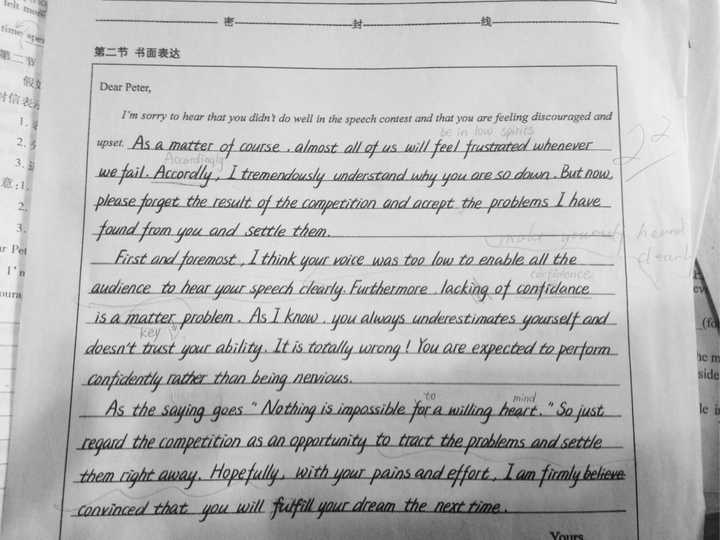 felt more
time spe
密 封 线
第二节 书面表达
第二节
Dear Peter,
I'm sorry to hear that you didn't do well in the speech contest and that you are feeling discouraged and
be in low spirits
upset. As a matter of course, almost all of us will feel frustrated whenever
22
Accordingly
we fail. Accordly, I tremendously understand why you are so down. But now,
please forget the result of the competition and accept the problems I have
found from you and settle them.
make yourself heard
clearly
First and foremost, I think your voice was too low to enable all the
confidence
audience to hear your speech clearly. Furthermore, lacking of confidance
is a matter problem. As I know, you always underestimates yourself and
key
doesn't trust your ability. It is totally wrong! You are expected to perform
confidently rather than being nervious.
to mind
As the saying goes "Nothing is impossible for a willing heart." So just
regard the competition as an opportunity to tract the problems and settle
them right away. Hopefully, with your pains and effort, I am firmly believe
convinced that you will fulfill your dream the next time.
Yours